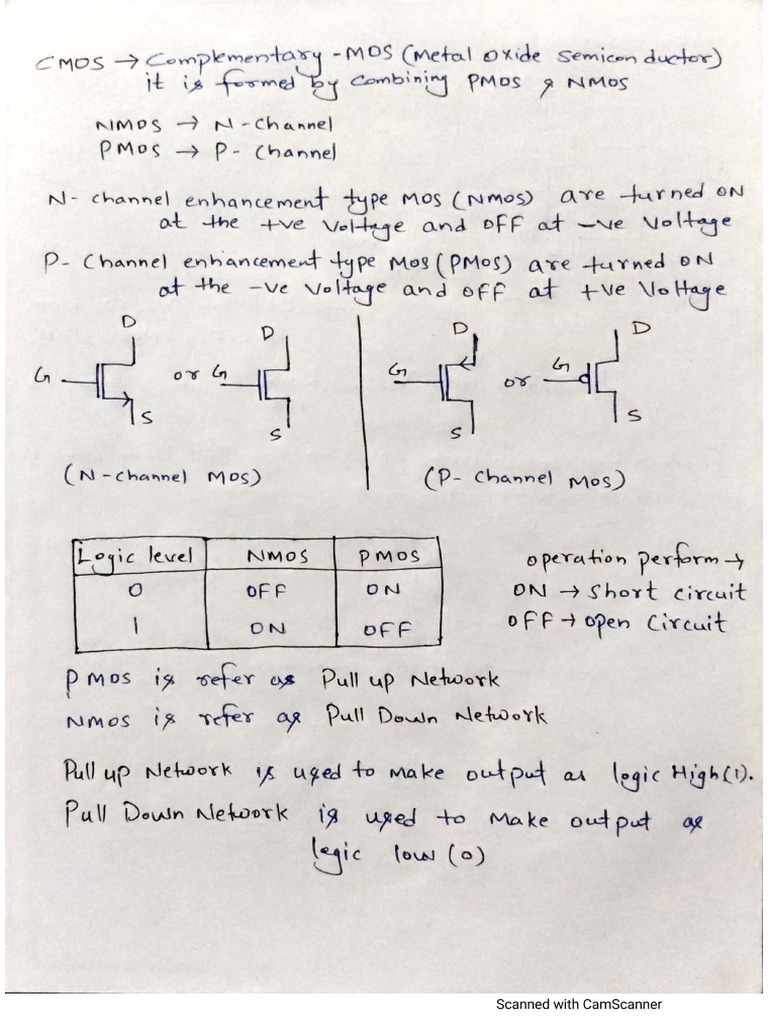 CMOS → Complementary - MOS (Metal Oxide Semiconductor)
it is formed by combining PMOS & NMOS
NMOS → N - Channel
PMOS → P - Channel
N- channel enhancement type MOS (NMOS) are turned ON
at the +ve Voltage and OFF at -ve Voltage
P- Channel enhancement type MOS (PMOS) are turned ON
at the -ve Voltage and OFF at +ve Voltage
D D D D
G or G G or G
S S S S
(N-channel MOS) (P- Channel MOS)
Logic level NMOS PMOS
0 OFF ON
1 ON OFF
operation perform →
ON → Short circuit
OFF → open Circuit
PMOS is refer as Pull up Network
NMOS is refer as Pull Down Network
Pull up Network is used to make output as logic High (1).
Pull Down Network is used to make output as
logic low (0)
Scanned with CamScanner